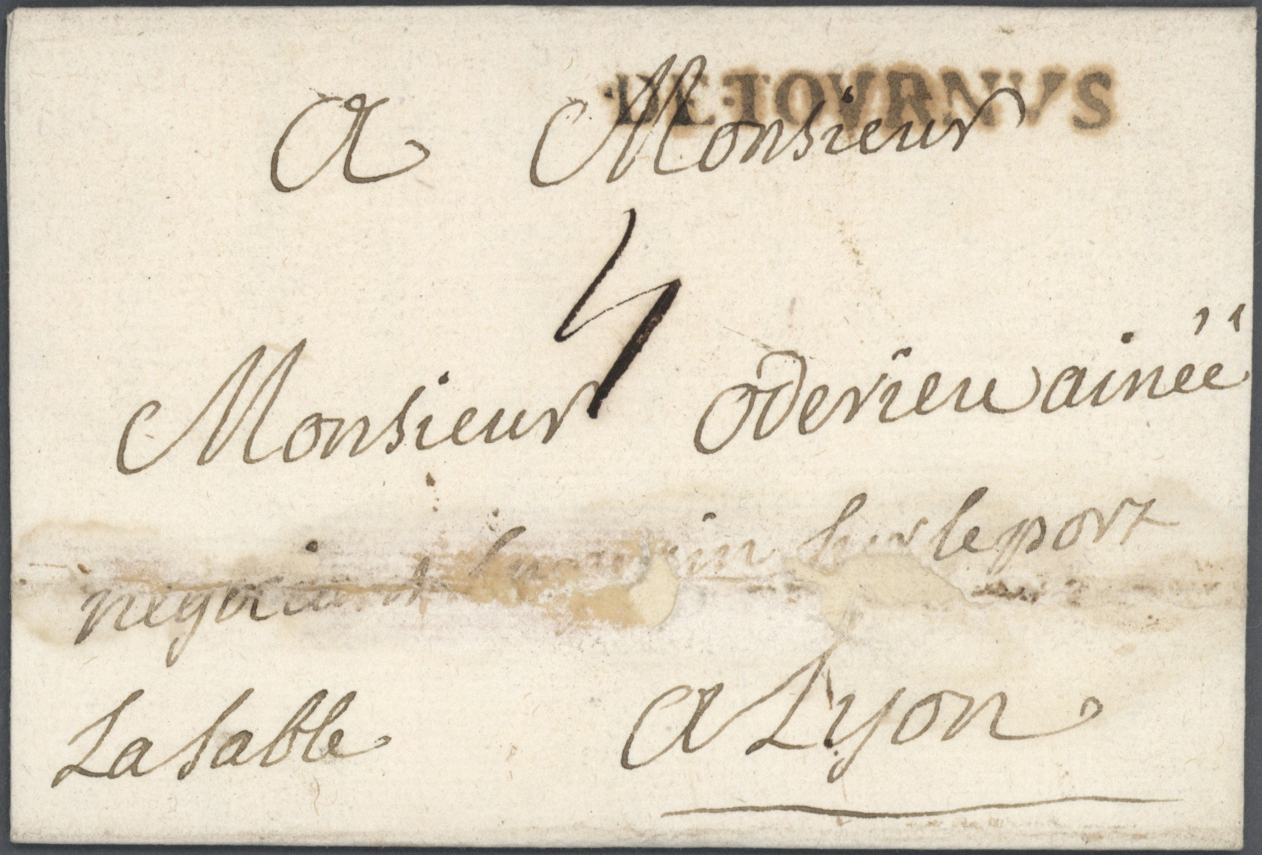 DE TOVRNVS
A Monsieur
4
Monsieur oderieu ainéé
negociant sur le port
La sable
A Lyon